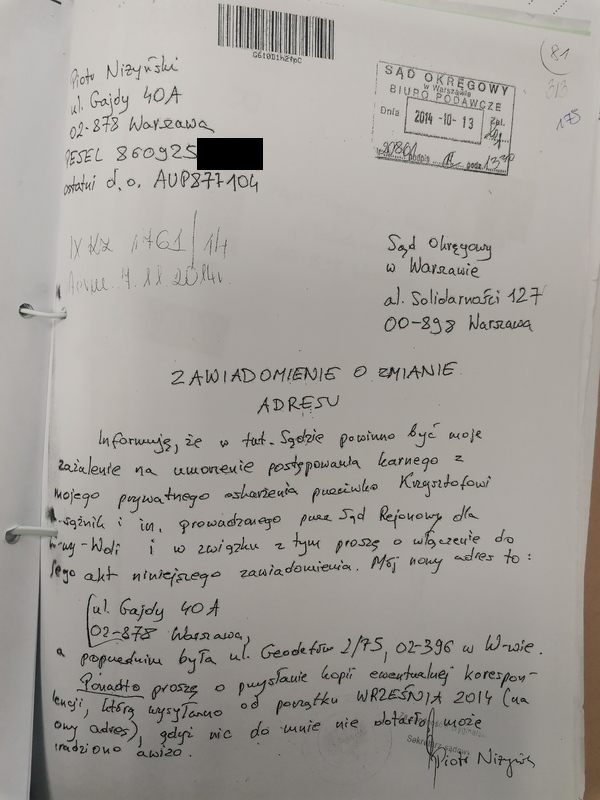 G610D1h2fpC
81
313
175
Piotr Niżyński
ul. Gajdy 40A
02-878 Warszawa
PESEL 860925
ostatni d.o. AUP877104
SĄD OKRĘGOWY
w Warszawie
BIURO PODAWCZE
Dnia 2014 -10- 13 zał.
podpis godz.
IX Kz 1761/14
7.11.2014r.
Sąd Okręgowy
w Warszawie
al. Solidarności 127
00-898 Warszawa
ZAWIADOMIENIE O ZMIANIE
ADRESU
Informuję, że w tut. Sądzie powinno być moje
zażalenie na umorzenie postępowania karnego z
mojego prywatnego oskarżenia przeciwko Krzysztofowi
i in., prowadzonego przez Sąd Rejonowy dla
-Woli i w związku z tym proszę o włączenie do
akt niniejszego zawiadomienia. Mój nowy adres to:
ul. Gajdy 40A
02-878 Warszawa,
a poprzednim była ul. Geodetów 2/75, 02-396 w W-wie.
Ponadto proszę o przysłanie kopii ewentualnej korespon-
dencji, którą wysyłano od początku WRZEŚNIA 2014 (na
adres), gdyż nic do mnie nie dotarło, może
awizo.
Sekretarz sądowy
Piotr Niżyński